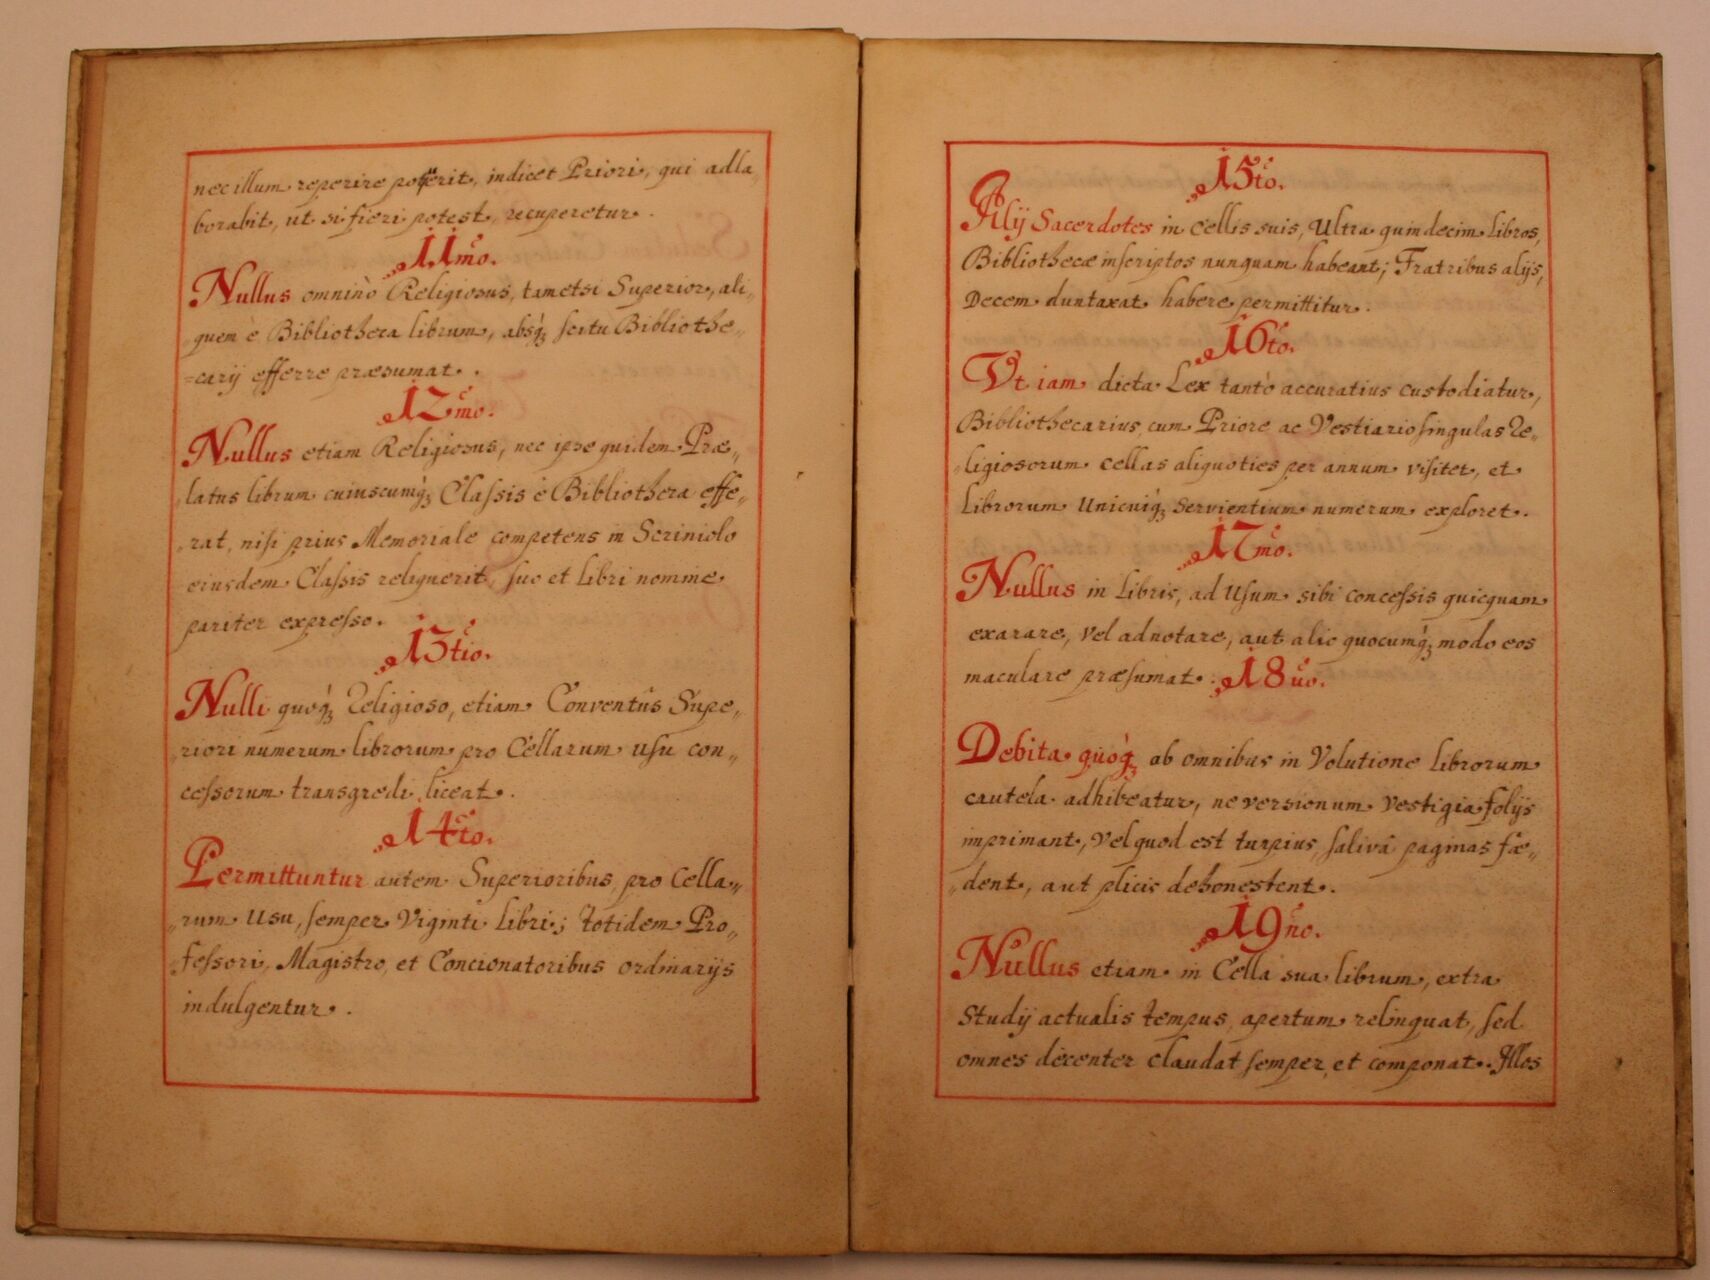 nec illum reperire poterit, indicet Priori, qui adla
borabit, ut si fieri potest, recuperetur.
11mo.
Nullus omninò Religiosus, tametsi Superior, ali„
quem è Bibliotheca librum, absq́ꝫ scitu Bibliothe„
=carij efferre præsumat.
12mo.
Nullus etiam Religiosus, nec ipse quidem Præ„
„latus librum cuiuscumq́ꝫ Claſsis è Bibliotheca effe„
„rat, niſi prius Memoriale competens in Scriniolo
eiusdem Claſsis reliquerit, ſuo et libri nomine
pariter expreſso.
13tio.
Nulli quoq́ꝫ Religioso, etiam Conventûs Supe„
„riori numerum librorum pro Cellarum uſu con„
ceſsorum transgredi liceat.
14to.
Permittuntur autem Superioribus, pro Cella„
„rum Usu, ſemper Viginti libri; totidem Pro„
„feſsori, Magistro, et Concionatoribus ordinarijs
indulgentur.
15to.
Alij Sacerdotes in Cellis suis, Ultra quindecim libros,
Bibliothecæ inſcriptos nunquam habeant; Fratribus alijs,
Decem duntaxat habere permittitur.
16to.
Vt iam dicta Lex tantò accuratius custodiatur,
Bibliothecarius, cum Priore ac Vestiario ſingulas Re„
„ligiosorum cellas aliquoties per annum viſitet, et
librorum Unicuiq́ꝫ Servientium numerum exploret.
17mo.
Nullus in libris, ad Uſum sibi conceſsis quicquam
exarare, vel adnotare, aut alio quocumq́ꝫ modo eos
maculare præſumat.
18uo.
Debita quoq́ꝫ ab omnibus in Volutione librorum
cautela adhibeatur, ne versionum vestigia folijs
imprimant, Vel quod est turpius, ſalivâ paginas fæ„
„dent, aut plicis dehonestent.
19no.
Nullus etiam in Cella sua librum, extra
Studij actualis tempus, apertum relinquat, ſed
omnes decenter claudat ſemper, et componat. Illos